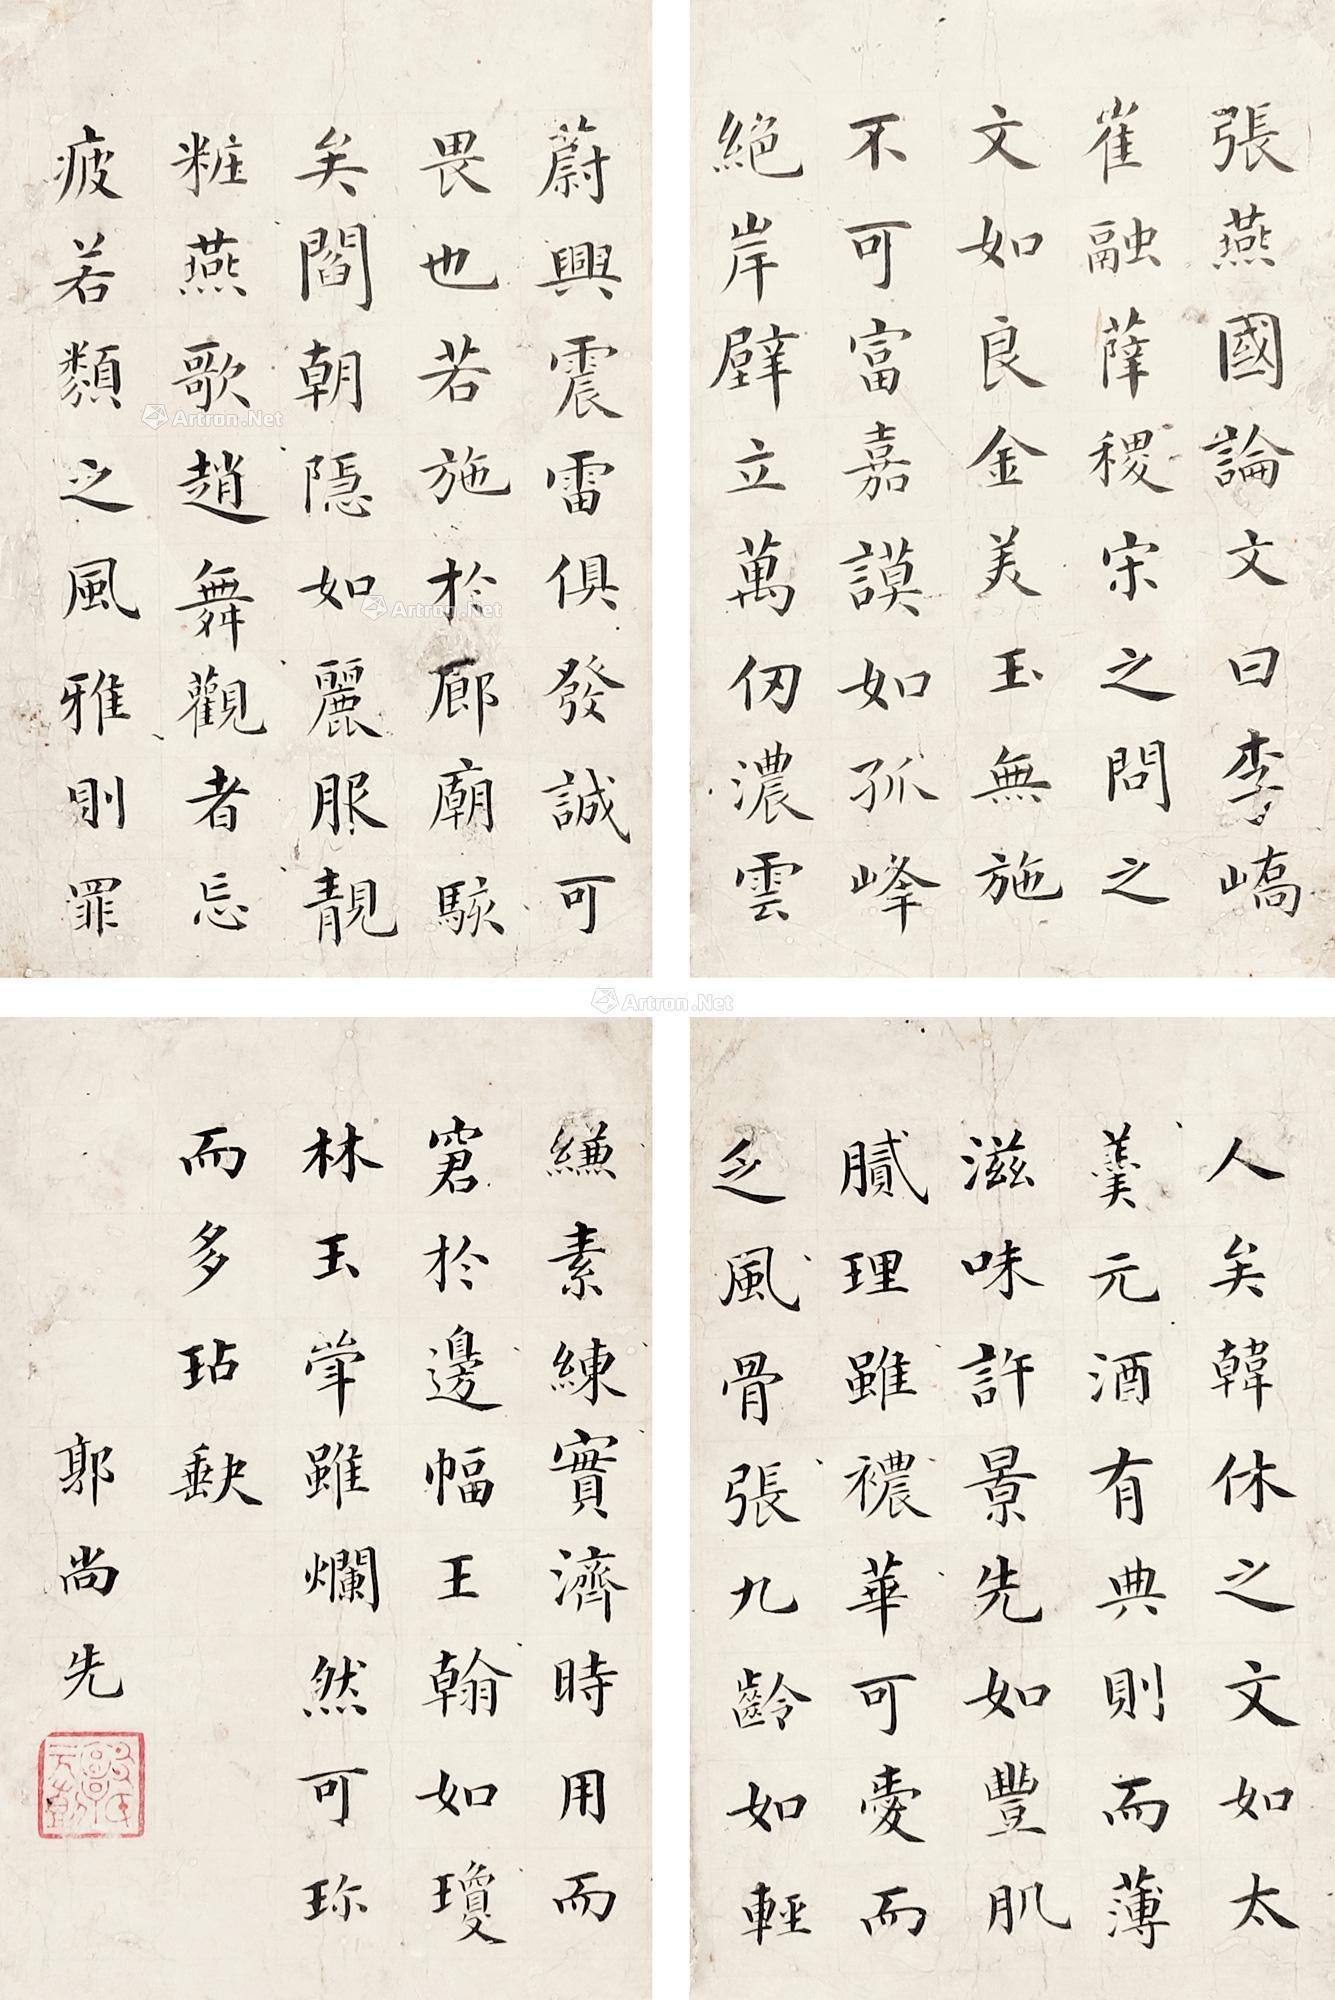 張燕國論文曰李嶠
崔融薛稷宋之問之
文如良金美玉無施
不可富嘉謨如孤峰
絕岸壁立萬仞濃雲
蔚興震雷俱發誠可
畏也若施於廊廟駭
矣閻朝隱如麗服靚
粧燕歌趙舞觀者忘
疲若類之風雅則罪
人矣韓休之文如太
羹元酒有典則而薄
滋味許景先如豐肌
膩理雖襛華可愛而
乏風骨張九齡如輕
縑素練實濟時用而
窘於邊幅王翰如瓊
林玉斝雖爛然可珎
而多玷缺
郭尚先
Artron.Net
Artron.Net
Artron.Net